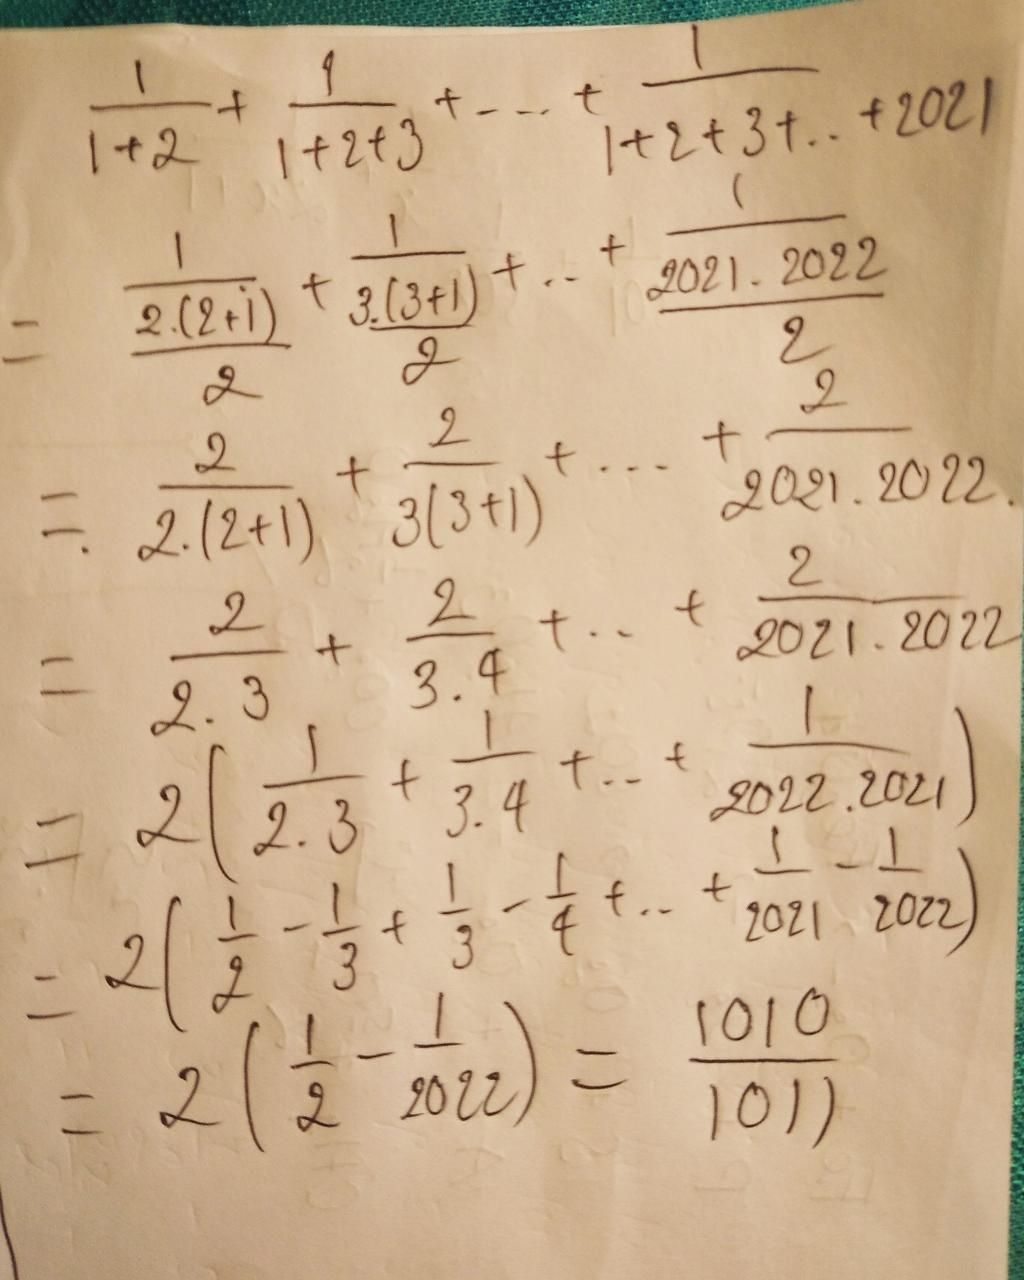 1/(1+2) + 1/(1+2+3) + ... + 1/(1+2+3+.. +2021)
= 1/((2.(2+1))/2) + 1/((3.(3+1))/2) + .. + 1/((2021.2022)/2)
=. 2/(2.(2+1)) + 2/(3(3+1)) + ... + 2/(2021.2022.)
= 2/(2.3) + 2/(3.4) + .. + 2/(2021.2022)
= 2(1/(2.3) + 1/(3.4) + .. + 1/(2022.2021))
= 2(1/2 - 1/3 + 1/3 - 1/4 + .. + 1/2021 - 1/2022)
= 2(1/2 - 1/2022) = 1010/1011